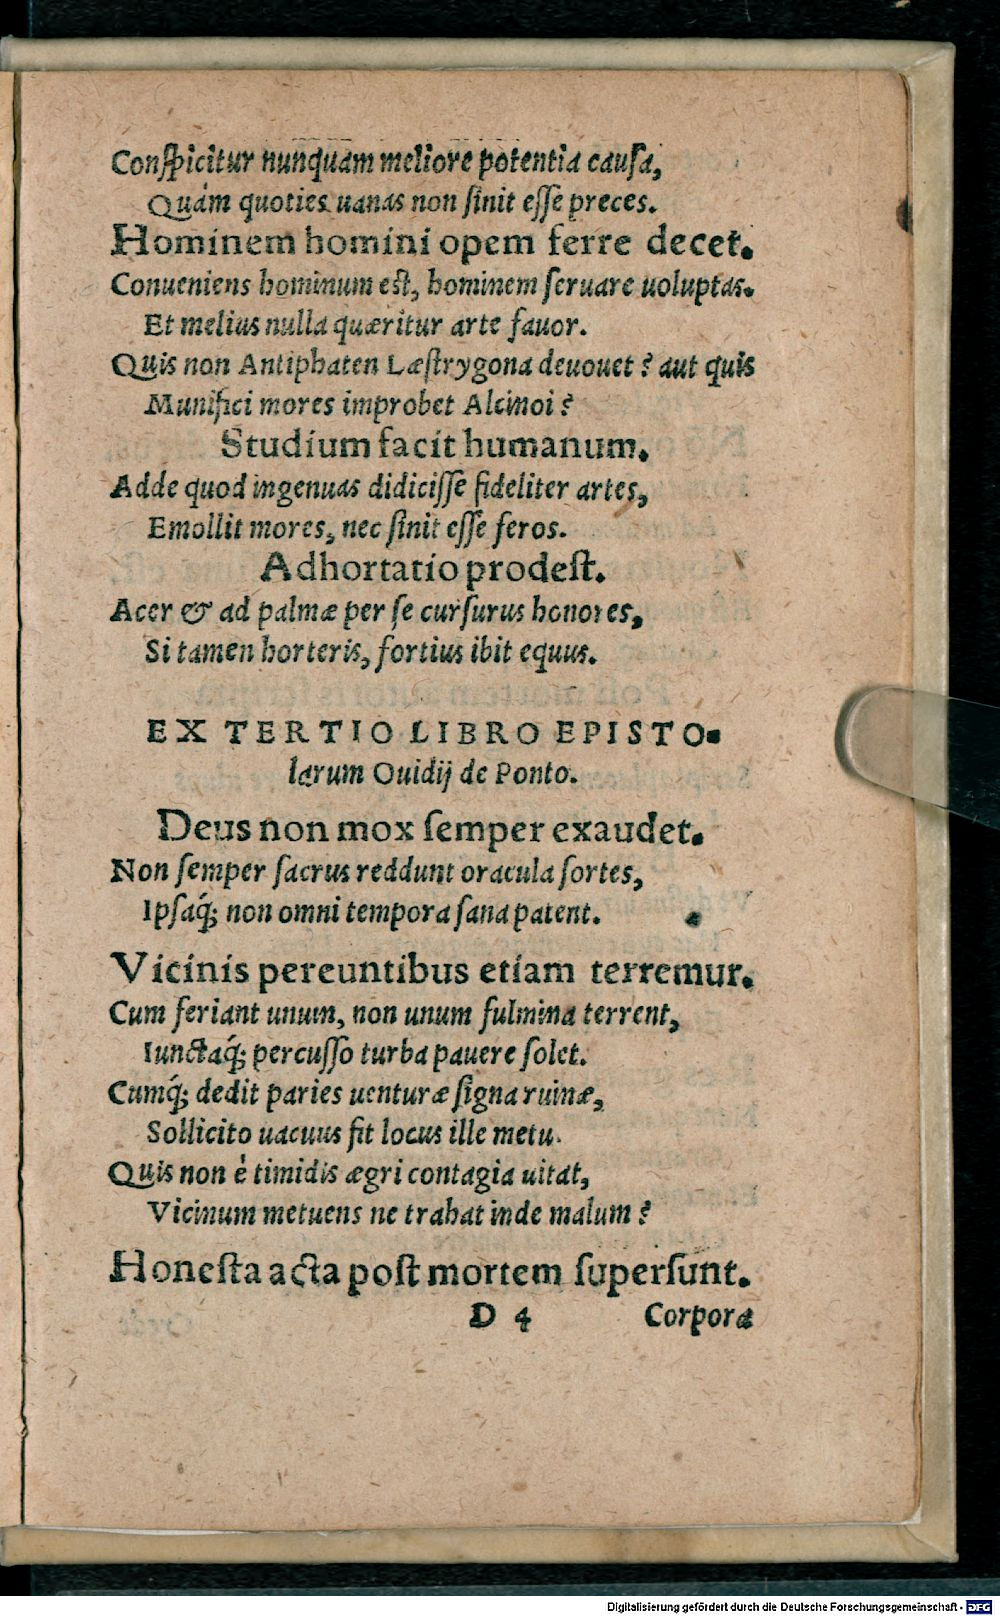 Conſpicitur nunquàm meliore potentia cauſa,
Quàm quoties uanas non ſinit eſſe preces.
Hominem homini opem ferre decet.
Conueniens hominum eſt, hominem ſeruare uoluptas.
Et melius nulla quæritur arte fauor.
Quis non Antiphaten Læſtrygona deuouet? aut quis
Munifici mores improbet Alcinoi?
Studium facit humanum.
Adde quod ingenuas didiciſſe fideliter artes,
Emollit mores, nec ſinit eſſe feros.
Adhortatio prodeſt.
Acer & ad palmæ per ſe curſurus honores,
Si tamen horteris, fortius ibit equus.
EX TERTIO LIBRO EPISTO-
larum Ouidij de Ponto.
Deus non mox ſemper exaudet.
Non ſemper ſacrus reddunt oracula ſortes,
Ipſaq́; non omni tempora fana patent.
Vicinis pereuntibus etiam terremur.
Cum feriant unum, non unum fulmina terrent,
Iunctaq́; percuſſo turba pauere ſolet.
Cumq́; dedit paries uenturæ ſigna ruinæ,
Sollicito uacuus fit locus ille metu.
Quis non è timidis ægri contagia uitat,
Vicinum metuens ne trahat inde malum?
Honeſta acta poſt mortem ſuperſunt.
D 4 Corpora
Digitalisierung gefördert durch die Deutsche Forschungsgemeinschaft - DFG